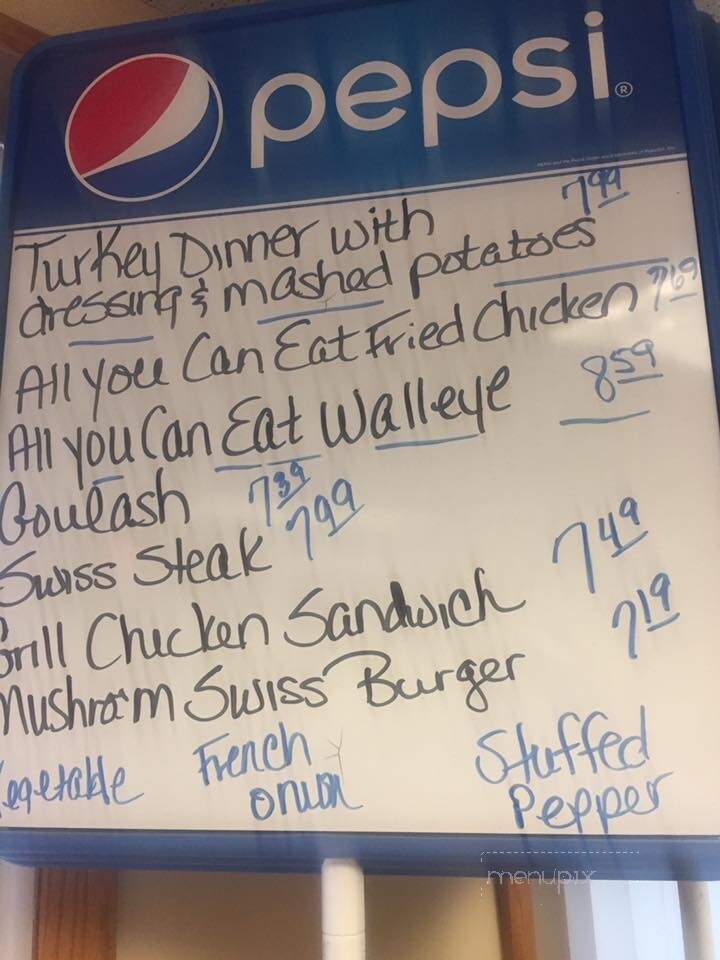 pepsi®
Turkey Dinner with 7.99
dressing & mashed potatoes
All you Can Eat Fried Chicken 7.69
All you Can Eat Walleye 8.59
Goulash 7.39
Swiss Steak 7.99
Grill Chicken Sandwich 7.49
Mushroom Swiss Burger 7.19
Vegetable French onion Stuffed Pepper
menupix